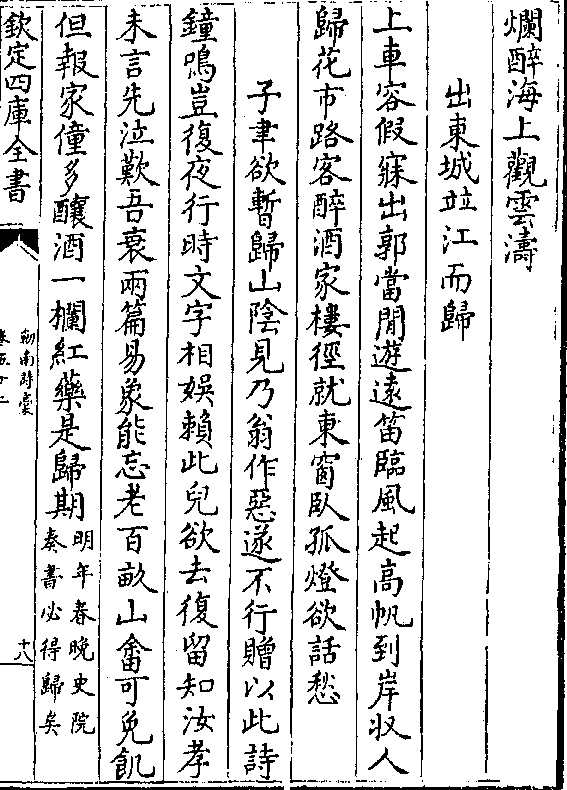 爛醉海上觀雲濤
出東城並江而歸
上車容假寐出郭當閒遊遠笛臨風起高帆到岸收人
歸花市路客醉酒家樓徑就東窗臥孤燈欲話愁
子聿欲暫歸山隂見乃翁作惡遂不行贈以此詩
鐘鳴豈復夜行時文字相娱賴此兒欲去復留知汝孝
未言先泣歎吾衰兩篇易象能忘老百畝山畬可免飢
但報家僮多釀酒一欄紅藥是歸期
明年春晚史院
奏書必得歸矣
欽定四庫全書
劒南詩稾
卷五十二
十八